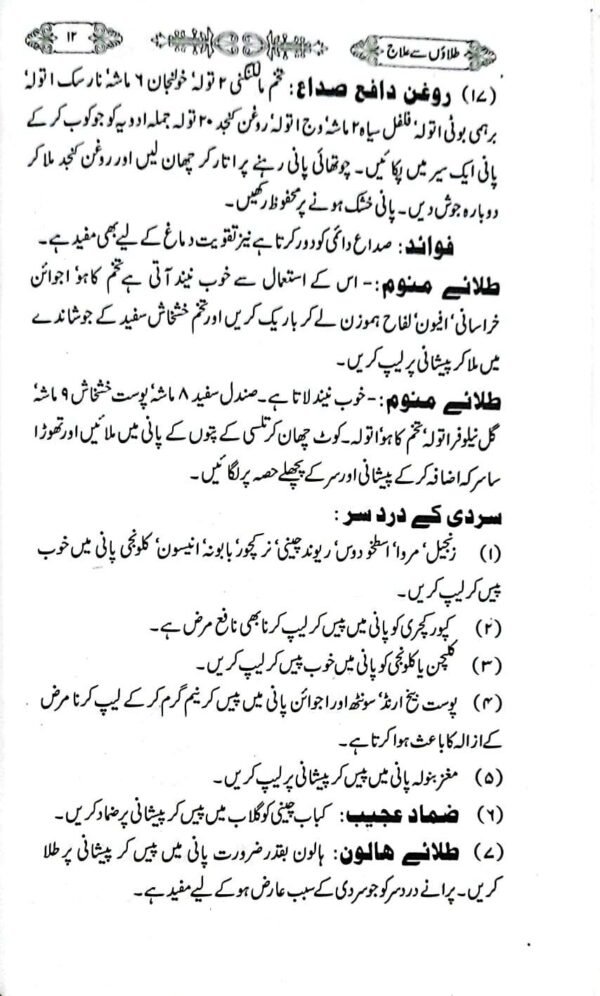 طلاؤں سے علاج
۱۲
(۱۷) روغن دافع صداع: تخم مالکنگنی ۲ تولہ‘ خولنجان ۶ ماشہ‘ نارسک اتولہ‘
برہمی بوٹی اتولہ‘ فلفل سیاہ ۲ ماشہ‘ وج اتولہ‘ روغن کنجد ۲۰ تولہ جملہ ادویہ کو جو کوب کر کے
پانی ایک سیر میں پکائیں۔ چوتھائی پانی رہنے پر اتار کر چھان لیں اور روغن کنجد ملا کر
دوبارہ جوش دیں۔ پانی خشک ہونے پر محفوظ رکھیں۔
فوائد: صداع دائمی کو دور کرتا ہے نیز تقویت دماغ کے لیے بھی مفید ہے۔
طلائے منوم:- اس کے استعمال سے خوب نیند آتی ہے تخم کاہو‘ اجوائن
خراسانی‘ افیون‘ لفاح ہموزن لے کر باریک کریں اور تخم خشخاش سفید کے جوشاندے
میں ملا کر پیشانی پر لیپ کریں۔
طلائے منوم:- خوب نیند لاتا ہے۔ صندل سفید ۸ ماشہ‘ پوست خشخاش ۹ ماشہ‘
گل نیلوفر اتولہ‘ تخم کاہو‘ اتولہ۔ کوٹ چھان کر تلسی کے پتوں کے پانی میں ملائیں اور تھوڑا
سا سرکہ اضافہ کر کے پیشانی اور سر کے پچھلے حصہ پر لگائیں۔
سردی کے درد سر:
(۱) زنجبیل‘ مروا‘ اسطخودوس‘ ریوند چینی‘ نرکچور‘ بابونہ‘ انیسون‘ کلونجی پانی میں خوب
پیس کر لیپ کریں۔
(۲) کپور کچری کو پانی میں پیس کر لیپ کرنا بھی نافع مرض ہے۔
(۳) کلیجن یا کلونجی کو پانی میں خوب پیس کر لیپ کریں۔
(۴) پوست بیخ ارنڈ‘ سونٹھ اور اجوائن پانی میں پیس کر نیم گرم کر کے لیپ کرنا مرض
کے ازالہ کا باعث ہوا کرتا ہے۔
(۵) مغز بنولہ پانی میں پیس کر پیشانی پر لیپ کریں۔
(۶) ضماد عجیب: کباب چینی کو گلاب میں پیس کر پیشانی پر ضماد کریں۔
(۷) طلائے ہالون: ہالون بقدر ضرورت پانی میں پیس کر پیشانی پر طلا
کریں۔ پرانے درد سر کو جو سردی کے سبب عارض ہو کے لیے مفید ہے۔